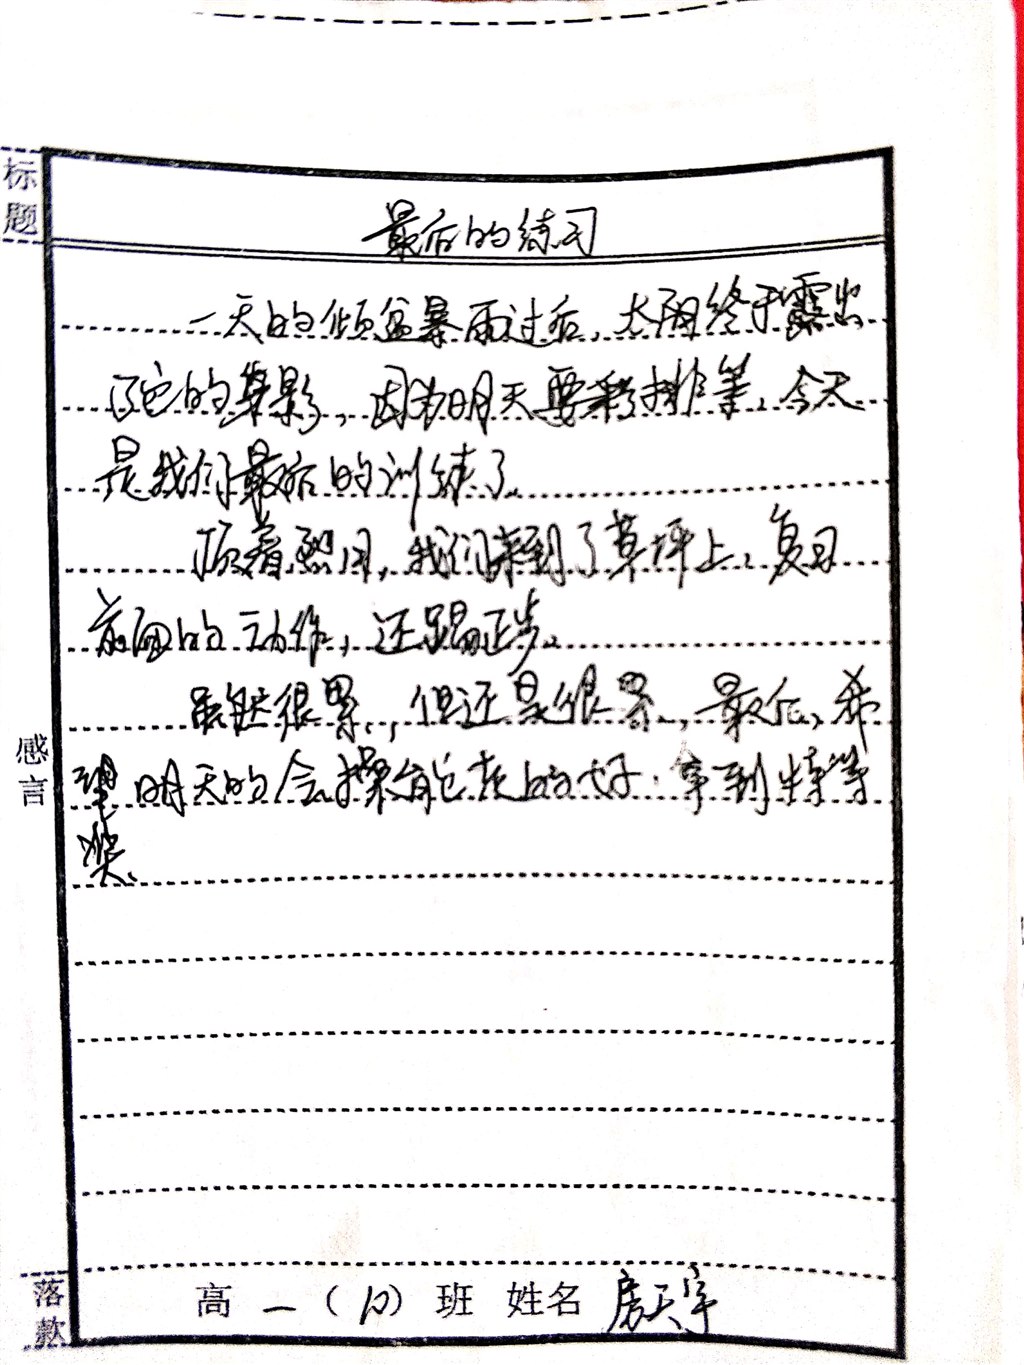 标题
最后的练习
一天的倾盆暴雨过后，太阳终于露出
了它的身影，因为明天要彩排等，今天
是我们最后的训练了。
顶着烈日，我们来到了草坪上，复习
前面的动作，还踢正步。
虽然很累，但还是很累，最后，希
望明天的会操能它夹上的好，拿到特等
奖。
感言
落款
高一（10）班 姓名 房天宇